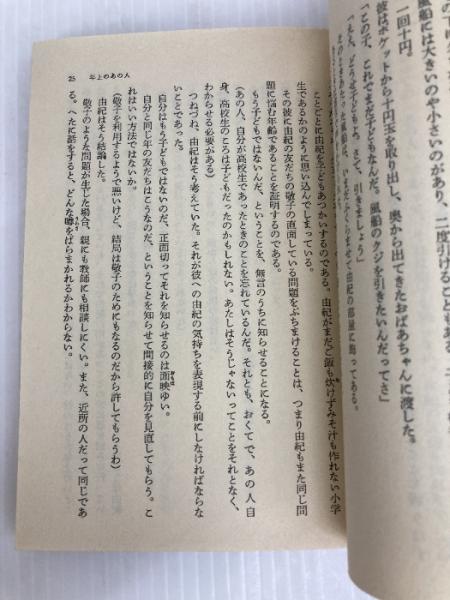 の下げ
風船には大きいのや小さいのがあり、二度引けることもある。
一回十円。
彼はポケットから十円玉を取り出し、奥から出てきたおばあちゃんに渡した。
「この子、これでまだ子どもなんだ。風船のクジを引きたいんだってさ」
「ええ、どうせ子どもよ。さて、引きましょう」
ことごとに由紀を子どもあつかいするのである。由紀がまだご飯も炊けずみそ汁も作れない小学
生であるかのように思い込んでしまっている。
その彼に由紀の友だちの敬子の直面している問題をぶちまけることは、つまり由紀もまた同じ問
題に悩む年齢であることを証明するのである。
もう子どもではないんだ、ということを、無言のうちに知らせることになる。
(あの人、自分が高校生であったときのことを忘れているんだ。それとも、おくてで、あの人自
身、高校生のころは子どもだったのかもしれない。あたしはそうじゃないってことをそれとなく、
わからせる必要がある)
つねづね、由紀はそう考えていた。それが彼への由紀の気持ちを表現する前にしなければならな
いことであった。
自分はもう子どもではないのだ、正面切ってそれを知らせるのは面映ゆい。
自分と同じ年の友だちはこうなのだ、ということを知らせて間接的に自分を見直してもらう。こ
れはいい方法ではないか。
(敬子を利用するようで悪いけど、結局は敬子のためにもなるのだから許してもらうわ)
由紀はそう結論した。
敬子のような問題が生じた場合、親にも教師にも相談しにくい。また、近所の人だって同じであ
る。へたに話をすると、どんな噂をばらまかれるかわからない。
25 年上のあの人